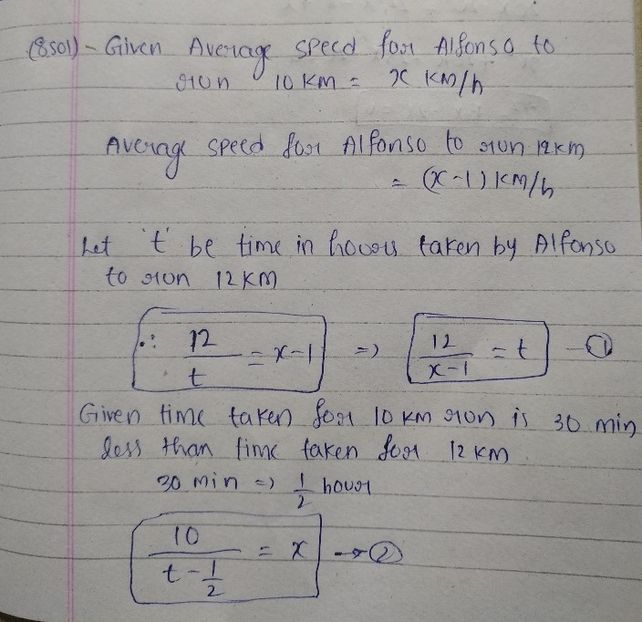 (8sol) - Given Average speed for Alfonso to
run 10 KM = x KM/h
Average speed for Alfonso to run 12KM
= (x-1) KM/h
Let 't' be time in hours taken by Alfonso
to run 12KM
∴ 12/t = x-1 => 12/(x-1) = t - ①
Given time taken for 10 KM run is 30 min
less than time taken for 12 KM.
30 min => 1/2 hour
10/(t-1/2) = x → ②